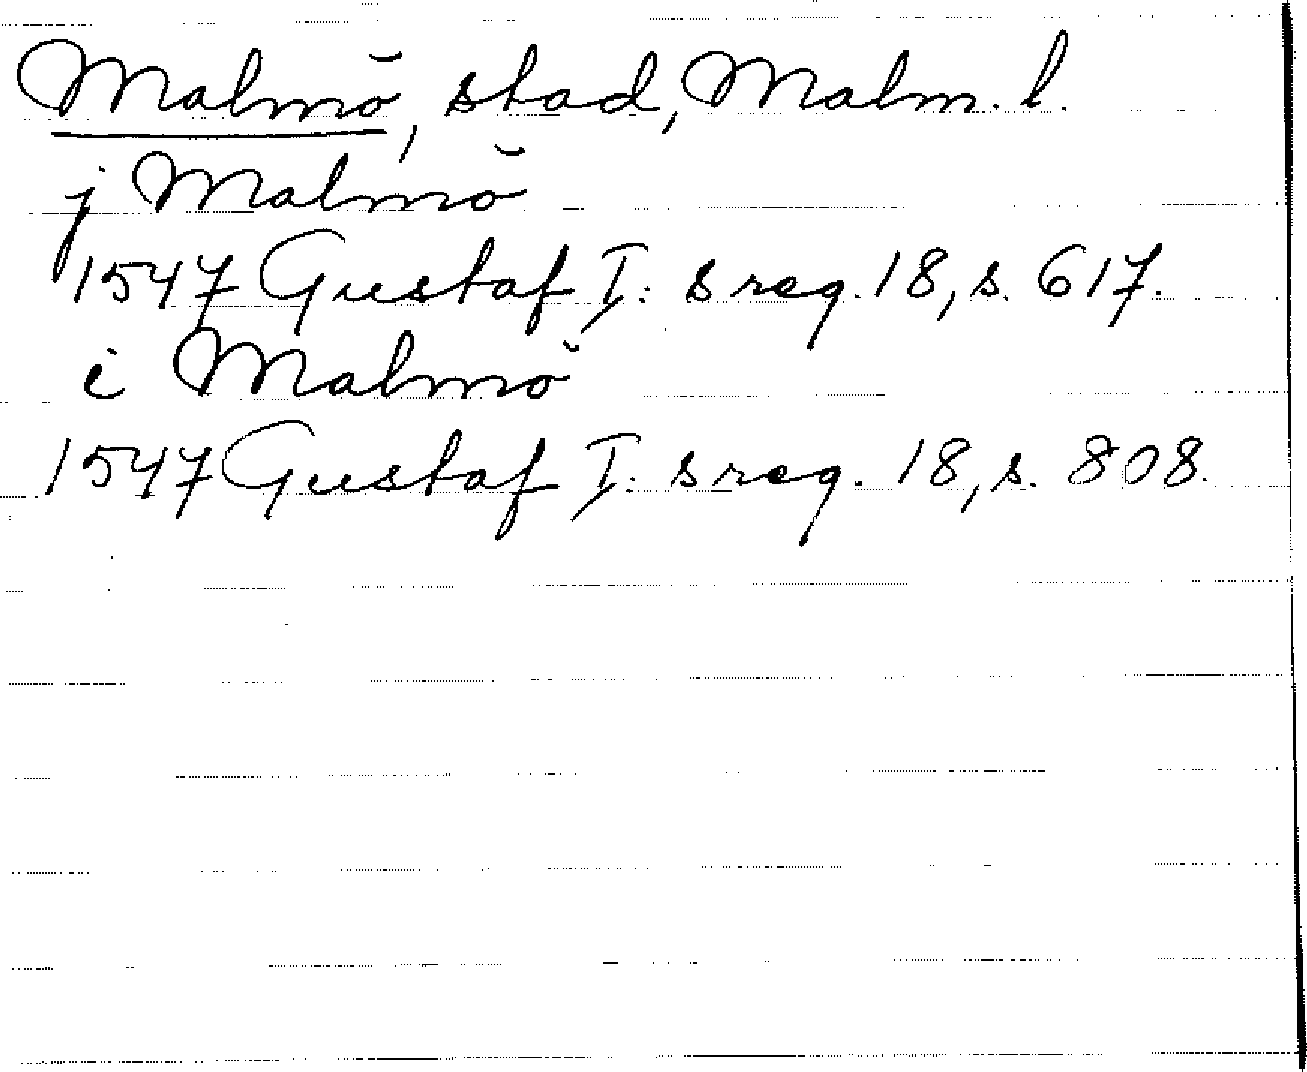 Malmö, stad, Malm. l.
j Malmö
1547 Gustaf I: s reg. 18, s. 617.
i Malmö
1547 Gustaf I: s reg. 18, s. 808.